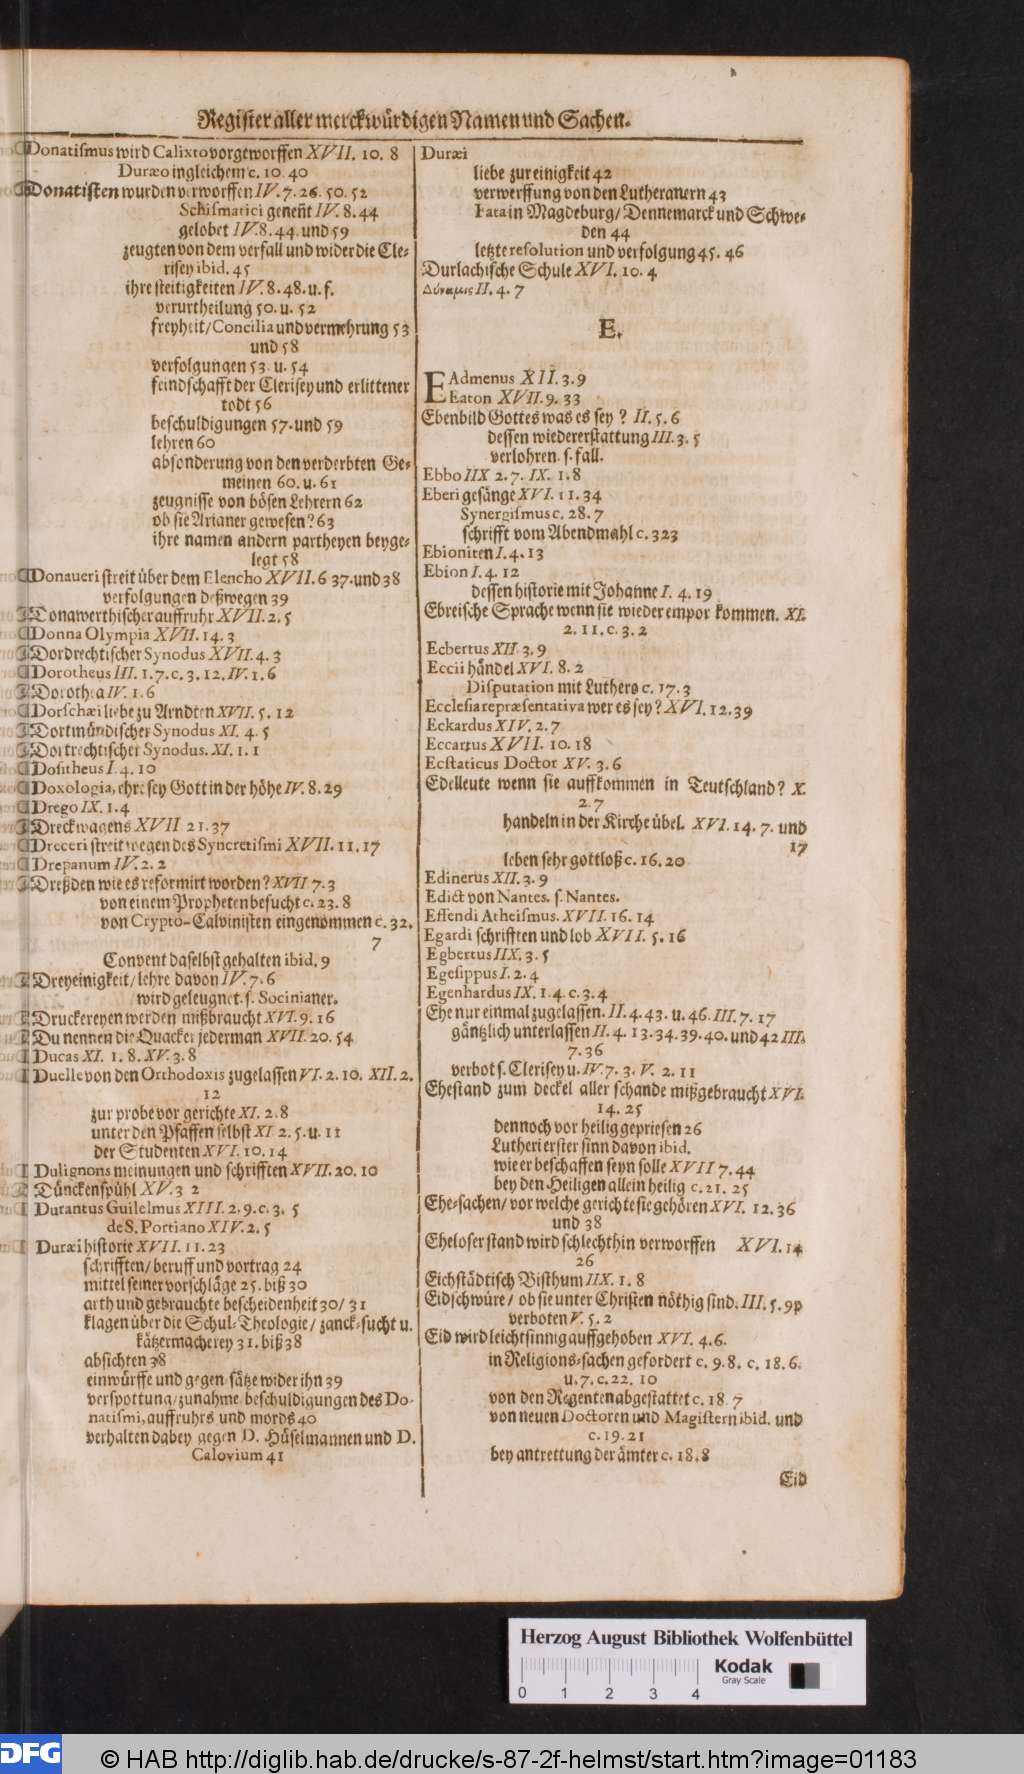 Register aller merckwürdigen Namen und Sachen.
Donatismus wird Calixto vorgeworffen XVII. 10. 8
Duræo ingleichem c. 10. 40
Donatisten wurden verworffen IV. 7. 26. 50. 52
Schismatici genen̄t IV. 8. 44
gelobet IV. 8. 44. und 59
zeugten von dem verfall und wider die Cle-
risey ibid. 45
ihre steitigkeiten IV. 8. 48. u. f.
verurtheilung 50. u. 52
freyheit/ Concilia und vermehrung 53
und 58
verfolgungen 53. u. 54
feindschafft der Clerisey und erlittener
todt 56
beschuldigungen 57. und 59
lehren 60
absonderung von den verderbten Ge-
meinen 60. u. 61
zeugnisse von bösen Lehrern 62
ob sie Arianer gewesen? 63
ihre namen andern partheyen beyge-
legt 58
Donaueri streit über dem Elencho XVII. 6 37. und 38
verfolgungen deßwegen 39
Donawerthischer auffruhr XVII. 2. 5
Donna Olympia XVII. 14. 3
Dordrechtischer Synodus XVII. 4. 3
Dorotheus III. 1. 7. c. 3. 12. IV. 1. 6
Dorothea IV. 1. 6
Dorschæi liebe zu Arndten XVII. 5. 12
Dortmündischer Synodus XI. 4. 5
Dortrechtischer Synodus. XI. 1. 1
Dositheus I. 4. 10
Doxologia, ehre sey Gott in der höhe IV. 8. 29
Drego IX. 1. 4
Dreckwagens XVII 21. 37
Dreceri streit wegen des Syncretismi XVII. 11. 17
Drepanum IV. 2. 2
Dreßden wie es reformirt worden? XVII 7. 3
von einem Propheten besucht c. 23. 8
von Crypto-Calvinisten eingenommen c. 32.
7
Convent daselbst gehalten ibid. 9
Dreyeinigkeit/ lehre davon IV. 7. 6
wird geleugnet. s. Socinianer.
Druckereyen werden mißbraucht XVI. 9. 16
Du nennen die Quacker jederman XVII. 20. 54
Ducas XI. 1. 8. XV. 3. 8
Duelle von den Orthodoxis zugelassen VI. 2. 10. XII. 2.
12
zur probe vor gerichte XI. 2. 8
unter den Pfaffen selbst XI 2. 5. u. 11
der Studenten XVI. 10. 14
Dulignons meinungen und schrifften XVII. 20. 10
Dünckenspühl XV. 3 2
Durantus Guilelmus XIII. 2. 9. c. 3. 5
de S. Portiano XIV. 2. 5
Duræi historie XVII. 11. 23
schrifften/ beruff und vortrag 24
mittel seiner vorschläge 25. biß 30
arth und gebrauchte bescheidenheit 30/ 31
klagen über die Schul-Theologie/ zanck-sucht u.
kätzermacherey 31. biß 38
absichten 38
einwürffe und gegen-sätze wider ihn 39
verspottung/ zunahme/ beschuldigungen des Do-
natismi, auffruhrs und mords 40
verhalten dabey gegen D. Hülselmannen und D.
Calovium 41
Duræi
liebe zur einigkeit 42
verwerffung von den Lutheranern 43
Fata in Magdeburg/ Dennemarck und Schwe-
den 44
letzte resolution und verfolgung 45. 46
Durlachische Schule XVI. 10. 4
Δύναμις II. 4. 7
E.
EAdmenus XII. 3. 9
Eaton XVII. 9. 33
Ebenbild Gottes was es sey? II. 5. 6
dessen wiedererstattung III. 3. 5
verlohren. s. fall.
Ebbo IIX 2. 7. IX. 1. 8
Eberi gesänge XVI. 11. 34
Synergismus c. 28. 7
schrifft vom Abendmahl c. 323
Ebioniten I. 4. 13
Ebion I. 4. 12
dessen historie mit Johanne I. 4. 19
Ebreische Sprache wenn sie wieder empor kommen. XI.
2. 11. c. 3. 2
Ecbertus XII. 3. 9
Eccii händel XVI. 8. 2
Disputation mit Luthero c. 17. 3
Ecclesia repræsentativa wer es sey? XVI. 12. 39
Eckardus XIV. 2. 7
Eccartus XVII. 10. 18
Ecstaticus Doctor XV. 3. 6
Edelleute wenn sie auffkommen in Teutschland? X.
2. 7
handeln in der Kirche übel. XVI. 14. 7. und
17
leben sehr gottloß c. 16. 20
Edinerus XII. 3. 9
Edict von Nantes. s. Nantes.
Effendi Atheismus. XVII. 16. 14
Egardi schrifften und lob XVII. 5. 16
Egbertus IIX. 3. 5
Egesippus I. 2. 4
Egenhardus IX. 1. 4. c. 3. 4
Ehe nur einmal zugelassen. II. 4. 43. u. 46. III. 7. 17
gäntzlich unterlassen II. 4. 13. 34. 39. 40. und 42 III.
7. 36
verbot s. Clerisey u. IV. 7. 3. V. 2. 11
Ehestand zum deckel aller schande mißgebraucht XVI.
14. 25
dennoch vor heilig gepriesen 26
Lutheri erster sinn davon ibid.
wie er beschaffen seyn solle XVII 7. 44
bey den Heiligen allein heilig c. 21. 25
Ehe-sachen/ vor welche gerichte sie gehören XVI. 12. 36
und 38
Eheloser stand wird schlechthin verworffen XVI. 14
26
Eichstädtisch Bisthum IIX. 1. 8
Eidschwüre/ ob sie unter Christen nöthig sind. III. 5. 9
verboten V. 5. 2
Eid wird leichtsinnig auffgehoben XVI. 4. 6.
in Religions-sachen gefordert c. 9. 8. c. 18. 6.
u. 7. c. 22. 10
von den Regenten abgestattet c. 18. 7
von neuen Doctoren und Magistern ibid. und
c. 19. 21
bey antrettung der ämter c. 18. 8
Eid
Herzog August Bibliothek Wolfenbüttel
Kodak
Gray Scale
0 1 2 3 4
DFG
© HAB http://diglib.hab.de/drucke/s-87-2f-helmst/start.htm?image=01183